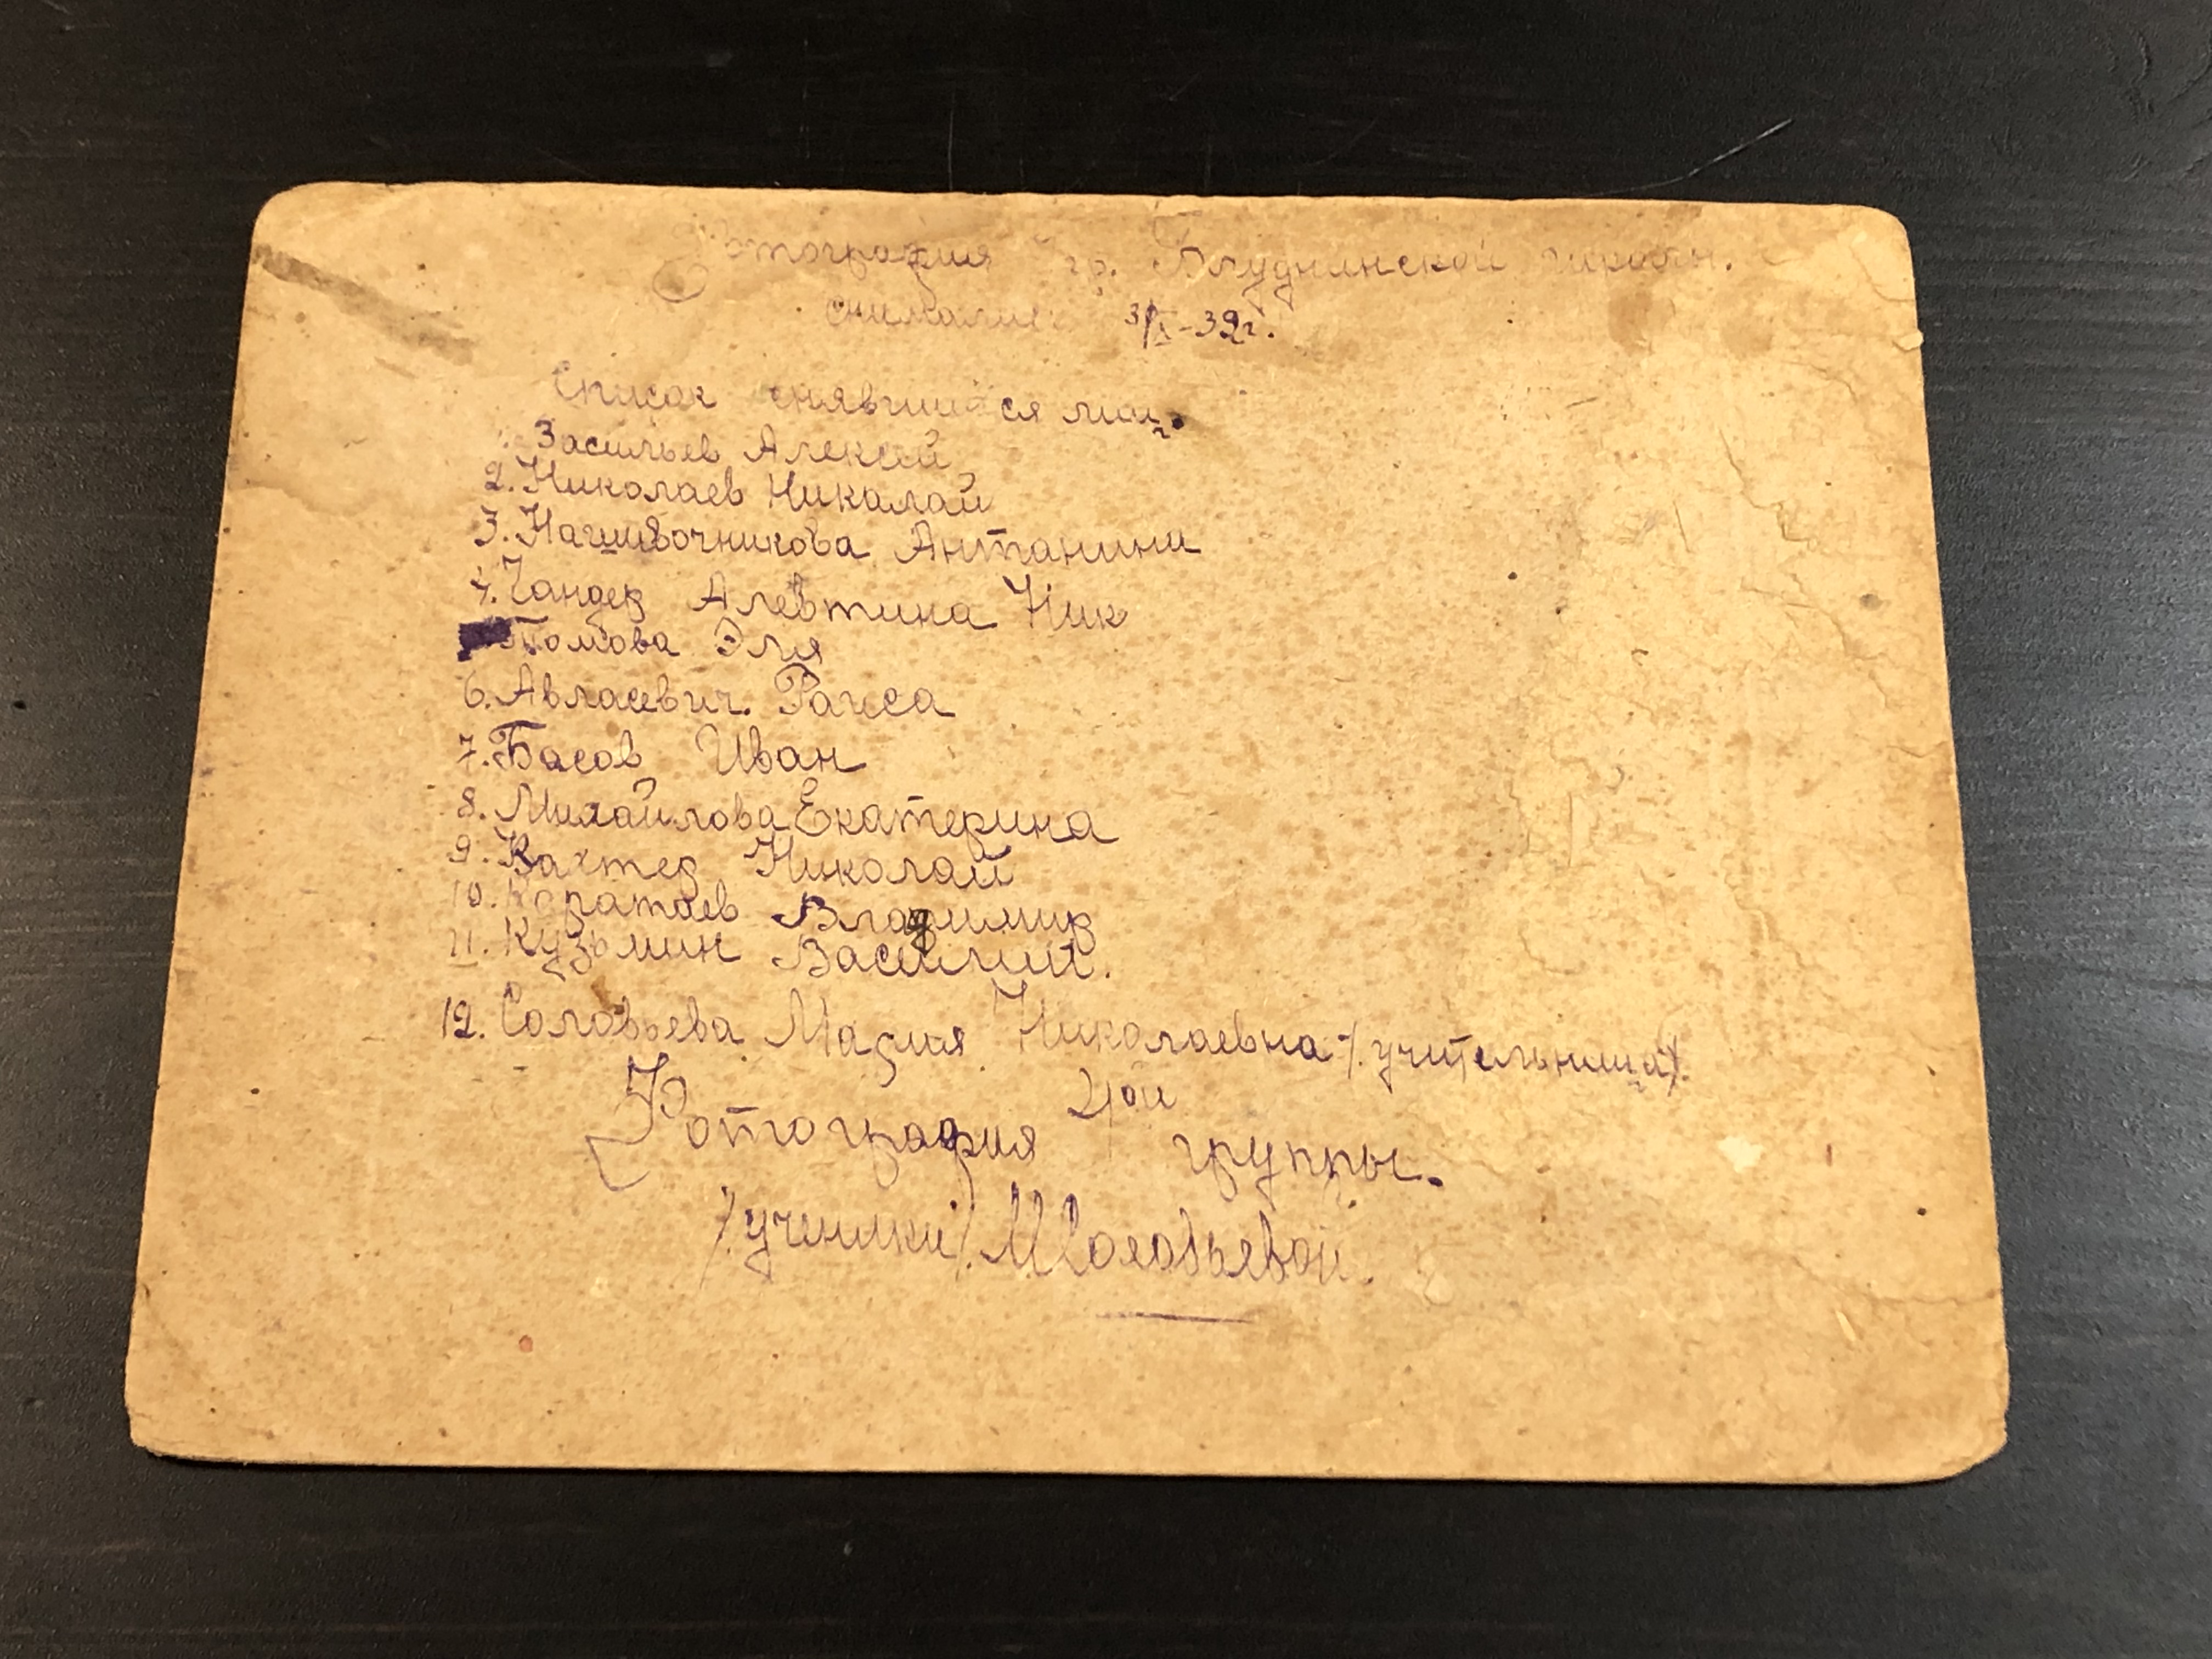 Фотография гр. Блуднинской школы.
снимались 3/X-39г.
Список снявшихся лиц.
Васильев Алексей
2. Николаев Николай
3. Нашивочникова Антанини
4. Гандер Алевтина Ник
Томова Эля
6. Авласевич. Раиса
7. Басов Иван
8. Михайлова Екатерина
9. Вахтер Николай
10. Каратаев Владимир
11. Кузьмин Василий.
12. Соловьева Мария Николаевна /учительница/.
Фотография 4ой группы.
/ученики/ МСоловьевой.